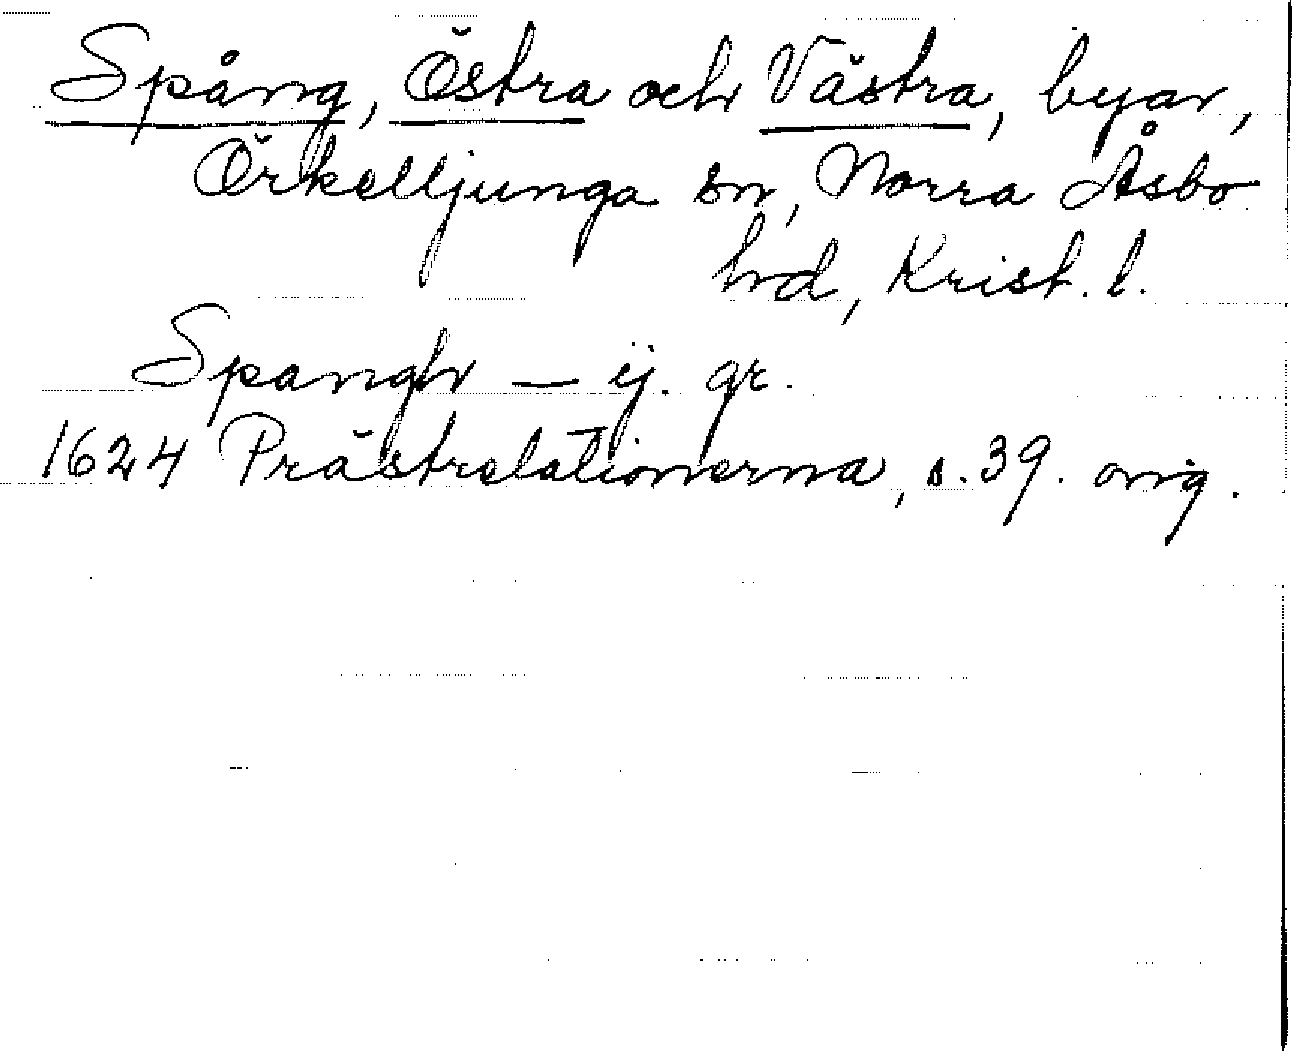 Spång, Östra och Västra, byar,
Örkelljunga sn, Norra Åsbo
hd, Krist. l.
Spangh — ij. gr.
1624 Prästrelationerna, s. 39. orig.